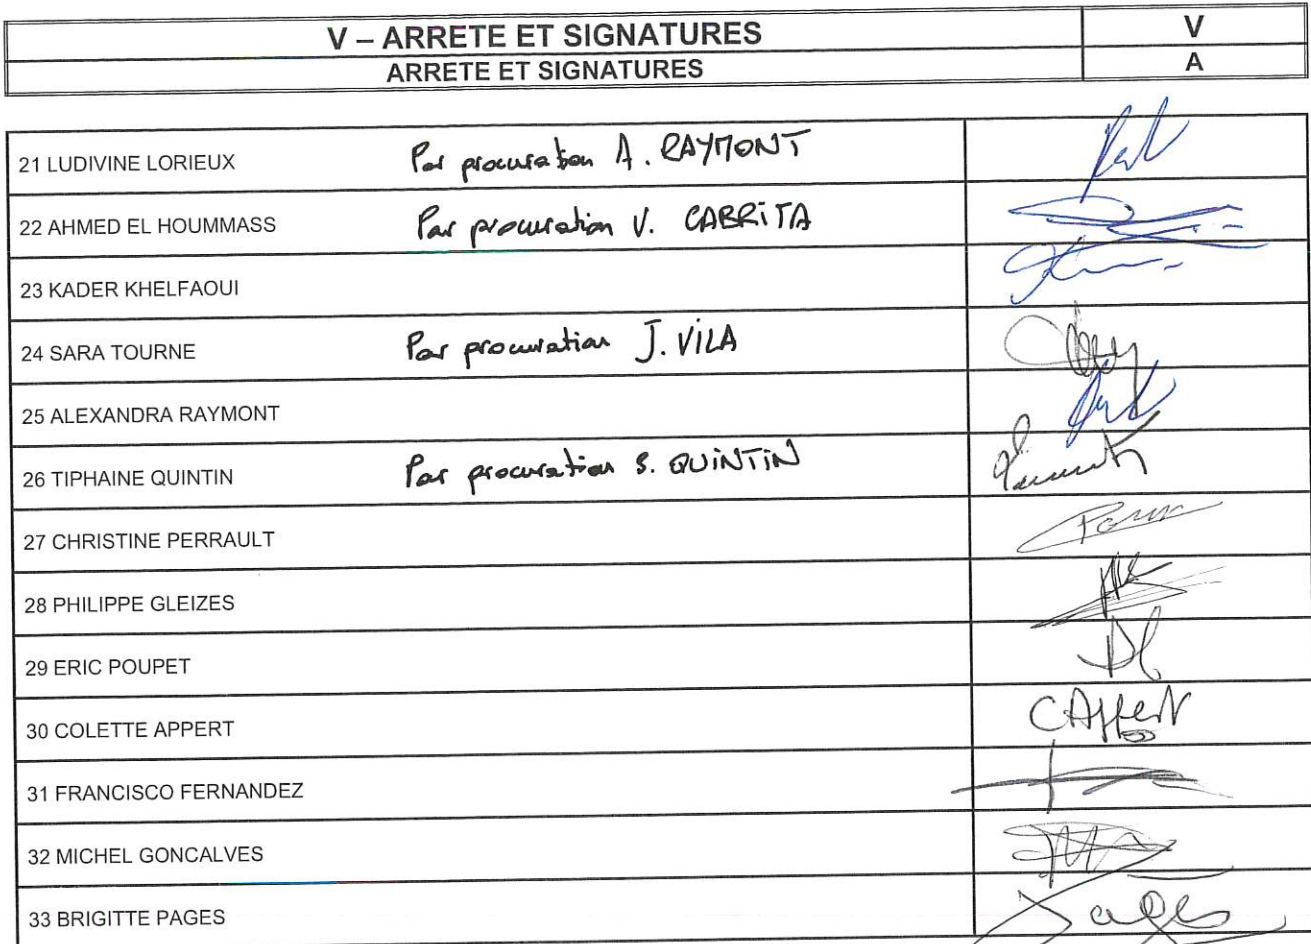 V – ARRETE ET SIGNATURES V
ARRETE ET SIGNATURES A
21 LUDIVINE LORIEUX Par procuration A. RAYMONT
22 AHMED EL HOUMMASS Par procuration V. CABRITA
23 KADER KHELFAOUI
24 SARA TOURNE Par procuration J. VILA
25 ALEXANDRA RAYMONT
26 TIPHAINE QUINTIN Par procuration S. QUINTIN
27 CHRISTINE PERRAULT
28 PHILIPPE GLEIZES
29 ERIC POUPET
30 COLETTE APPERT CAppert
31 FRANCISCO FERNANDEZ
32 MICHEL GONCALVES
33 BRIGITTE PAGES Pagès